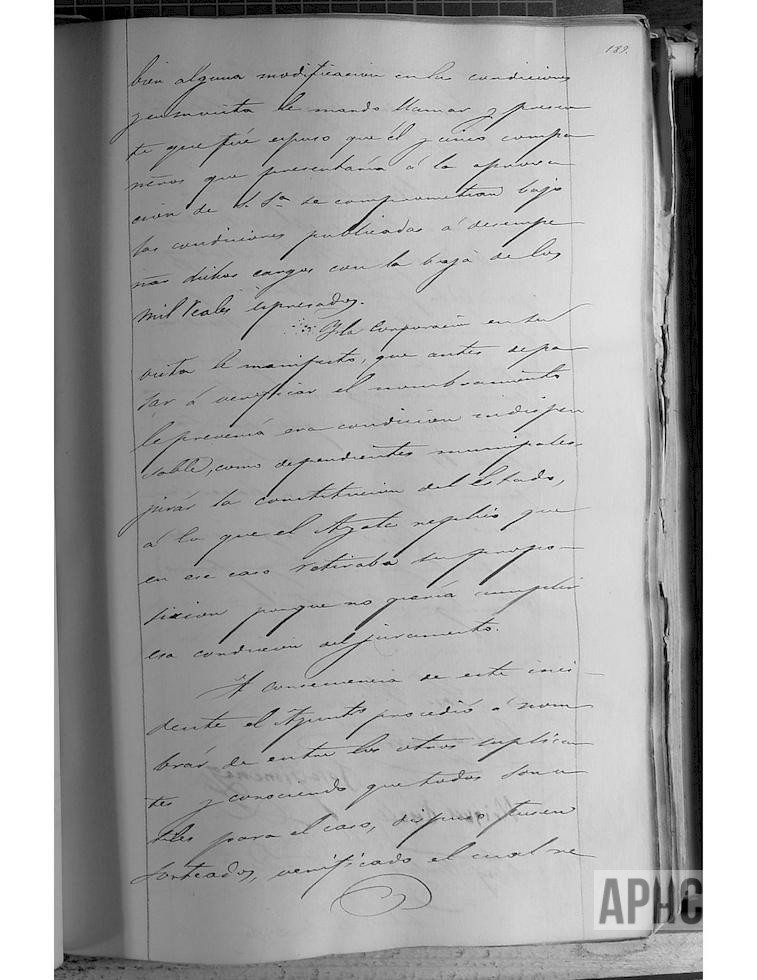 189.
bien alguna modificacion en las condiciones
y en su vista le mando llamar y presen
te que fué espuso que él y cinco compa
ñeros que presentaria á la aprova
cion de S. Sª se comprometian bajo
las condiciones publicadas á desempe
ñar dichos cargos con la baja de los
mil reales espresados.
Y la Corporacion en su
vista le manifesto, que antes de pa
sar á verificar el nombramiento
le prevenia era condicion indispen
sable, como dependientes municipales
jurár la constitucion del Estado,
á lo que el replicó que
en ese caso retiraba su propo-
sicion porque no queria cumplir
esa condicion del juramento.
A consecuencia de este inci-
dente el Ayunto procedió á nom
brár de entre los otros suplican
tes y conociendo que todos son u
tiles para el caso, dispuso fuesen
sorteados, verificado el cual re
APHC